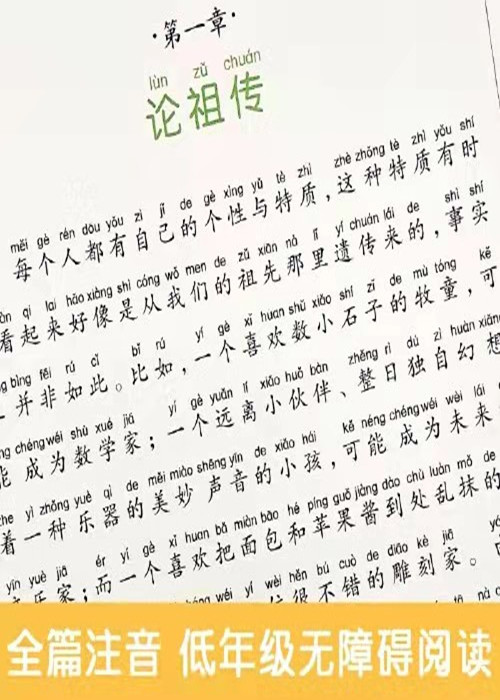 ·第一章·
lùn zǔ chuán
论祖传
měi gè rén dōu yǒu zì jǐ de gè xìng yǔ tè zhì zhè zhǒng tè zhì yǒu shí
每个人都有自己的个性与特质，这种特质有时
qǐ lai hǎo xiàng shì cóng wǒ men de zǔ xiān nà lǐ yí chuán lái de shì shí
看起来好像是从我们的祖先那里遗传来的，事实
bìng fēi rú cǐ bǐ rú yí gè xǐ huan shǔ xiǎo shí zǐ de mù tóng kě
并非如此。比如，一个喜欢数小石子的牧童，可
néng chéng wéi shù xué jiā yí gè yuǎn lí xiǎo huǒ bàn zhěng rì dú zì huàn xiǎng
能 成为数学家；一个远离小伙伴、整日独自幻想
zhe yì zhǒng yuè qì de měi miào shēng yīn de xiǎo hái kě néng chéng wéi wèi lái
着一种乐器的美妙声音的小孩，可能 成为未来
yīn yuè jiā ér yí gè xǐ huan bǎ miàn bāo hé píng guǒ jiàng dào chù luàn mǒ de
音乐家；而一个喜欢把面包和苹果酱到处乱抹的
wéi yí wèi hěn bú cuò de diāo kè jiā
位很不错的雕刻家。
全篇注音 低年级无障碍阅读